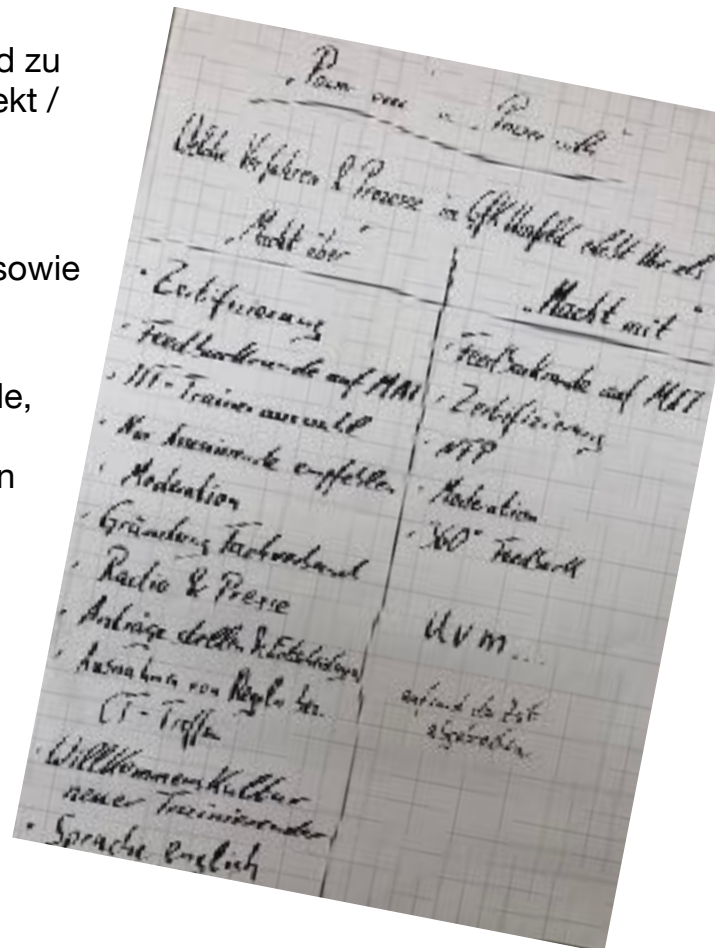 d zu
ekt /
sowie
le,
n
„Power over“ vs. „Power with“
Welche Verfahren & Prozesse im GfK Umfeld erlebt Ihr als
„Macht über“
· Zertifizierung
· Feedbackrunde auf MAI
· IIT-Trainerauswahl
· Nur Assessierende empfehlen
· Moderation
· Gründung Fachverband
· Radio & Presse
· Anträge stellen & Entscheidungen
· Ausnahmen von Regeln bez.
CT-Treffen
· Willkommenskultur
neuer Trainierender
· Sprache englich
„Macht mit“
· Feedbackrunde auf MIT
· Zertifizierung
· NTP
· Moderation
· 360° Feedback
uvm...
aufgrund der Zeit
abgebrochen